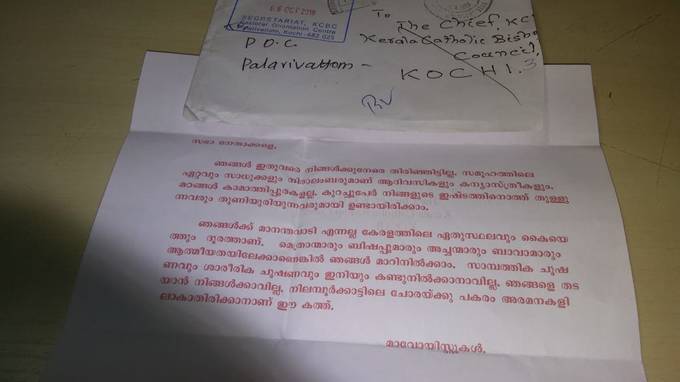 06 OCT 2018
SECRETARIAT, KCBC
Pastoral Orientation Centre
Palarivattom, Kochi-682 025
To
The Chief, KC
Kerala Catholic Bisho
Council,
KOCHI.
P O C
Palarivattom -
സഭാ നേതാക്കളെ,
ഞങ്ങൾ ഇതുവരെ നിങ്ങൾക്കുനേരെ തിരിഞ്ഞിട്ടില്ല. സമൂഹത്തിലെ
ഏറ്റവും സാധുക്കളും നിരാലംബരുമാണ് ആദിവാസികളും കന്യാസ്ത്രീകളും.
മഠങ്ങൾ കാമാത്തിപ്പുരകളല്ല. കുറച്ചുപേർ നിങ്ങളുടെ ഇഷ്ടത്തിനൊത്ത് തുള്ളു
ന്നവരും തുണിയുരിയുന്നവരുമായി ഉണ്ടായിരിക്കാം.
ഞങ്ങൾക്ക് മാനന്തവാടി എന്നല്ല കേരളത്തിലെ ഏതുസ്ഥലവും കൈയെ
ത്തും ദൂരത്താണ്. മെത്രാന്മാരും ബിഷപ്പുമാരും അച്ചന്മാരും ബാവാമാരും
ആത്മീയതയിലേക്കാണെങ്കിൽ ഞങ്ങൾ മാറിനിൽക്കാം. സാമ്പത്തിക ചൂഷ
ണവും ശാരീരിക ചൂഷണവും ഇനിയും കണ്ടുനിൽക്കാനാവില്ല. ഞങ്ങളെ തട
യാൻ നിങ്ങൾക്കാവില്ല. നിലമ്പൂർക്കാട്ടിലെ ചോരയ്ക്കു പകരം അരമനകളി
ലാകാതിരിക്കാനാണ് ഈ കത്ത്.
മാവോയിസ്റ്റുകൾ.